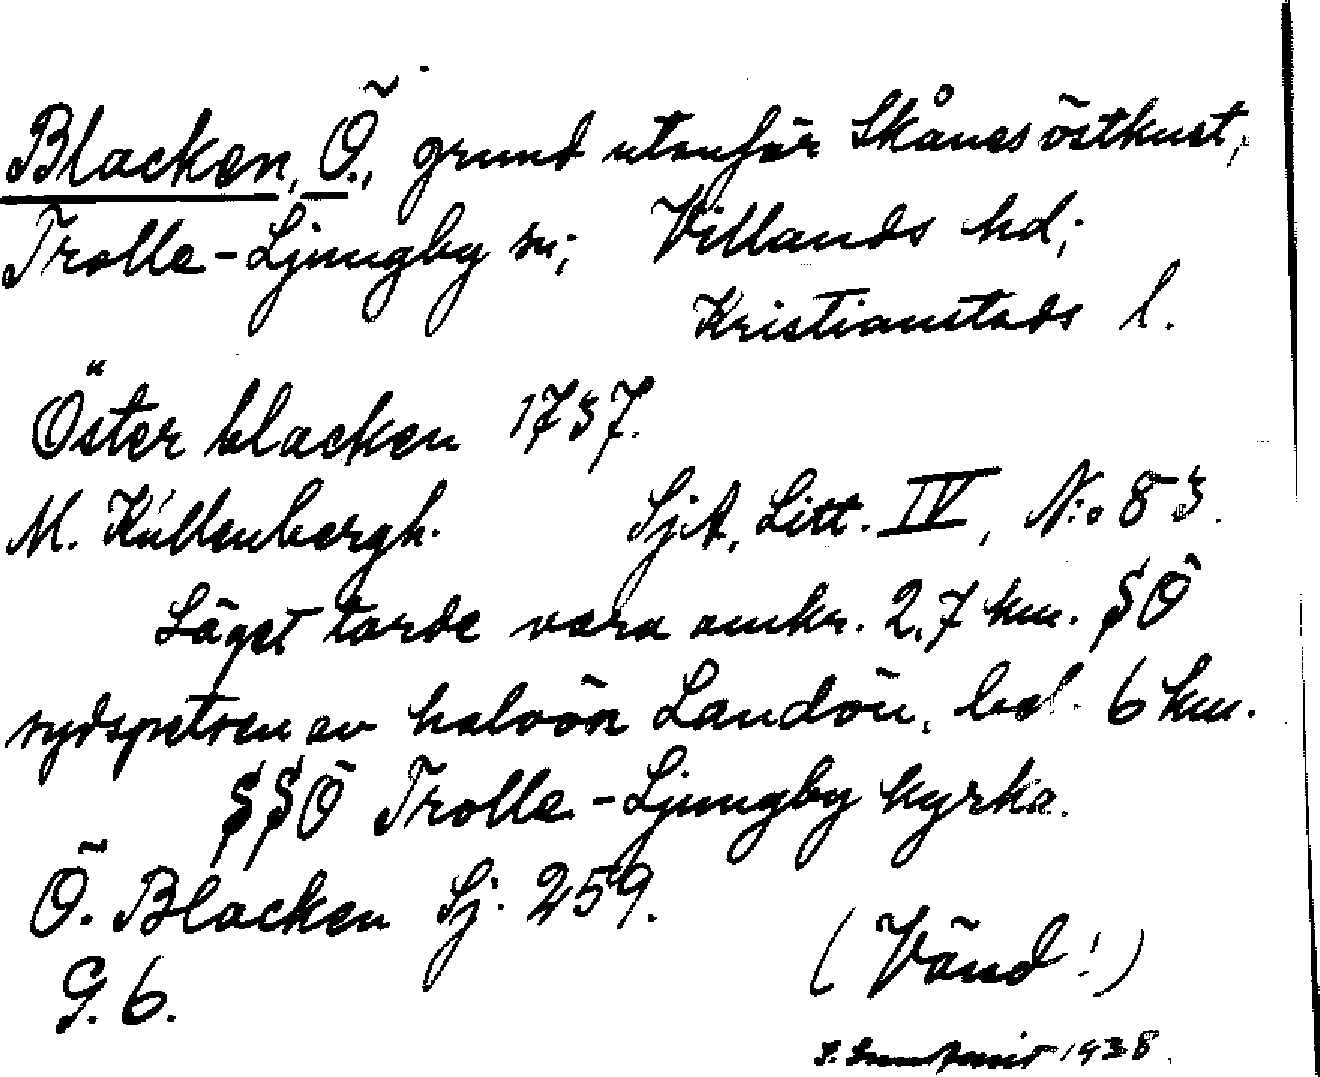 Blacken, Ö., grund utanför Skånes östkust,
Trolle-Ljungby sn; Villands hd;
Kristianstads l.
Öster blacken 1737.
M. Kullenbergh. SjA, Litt. IV, N:o 83.
Läget torde vara omkr. 2,7 km. SÖ
sydspetsen av halvön Landön, bel. 6 km.
SSÖ Trolle-Ljungby kyrka.
Ö. Blacken Sj. 259.
G. 6.
(Vänd!)
1938.